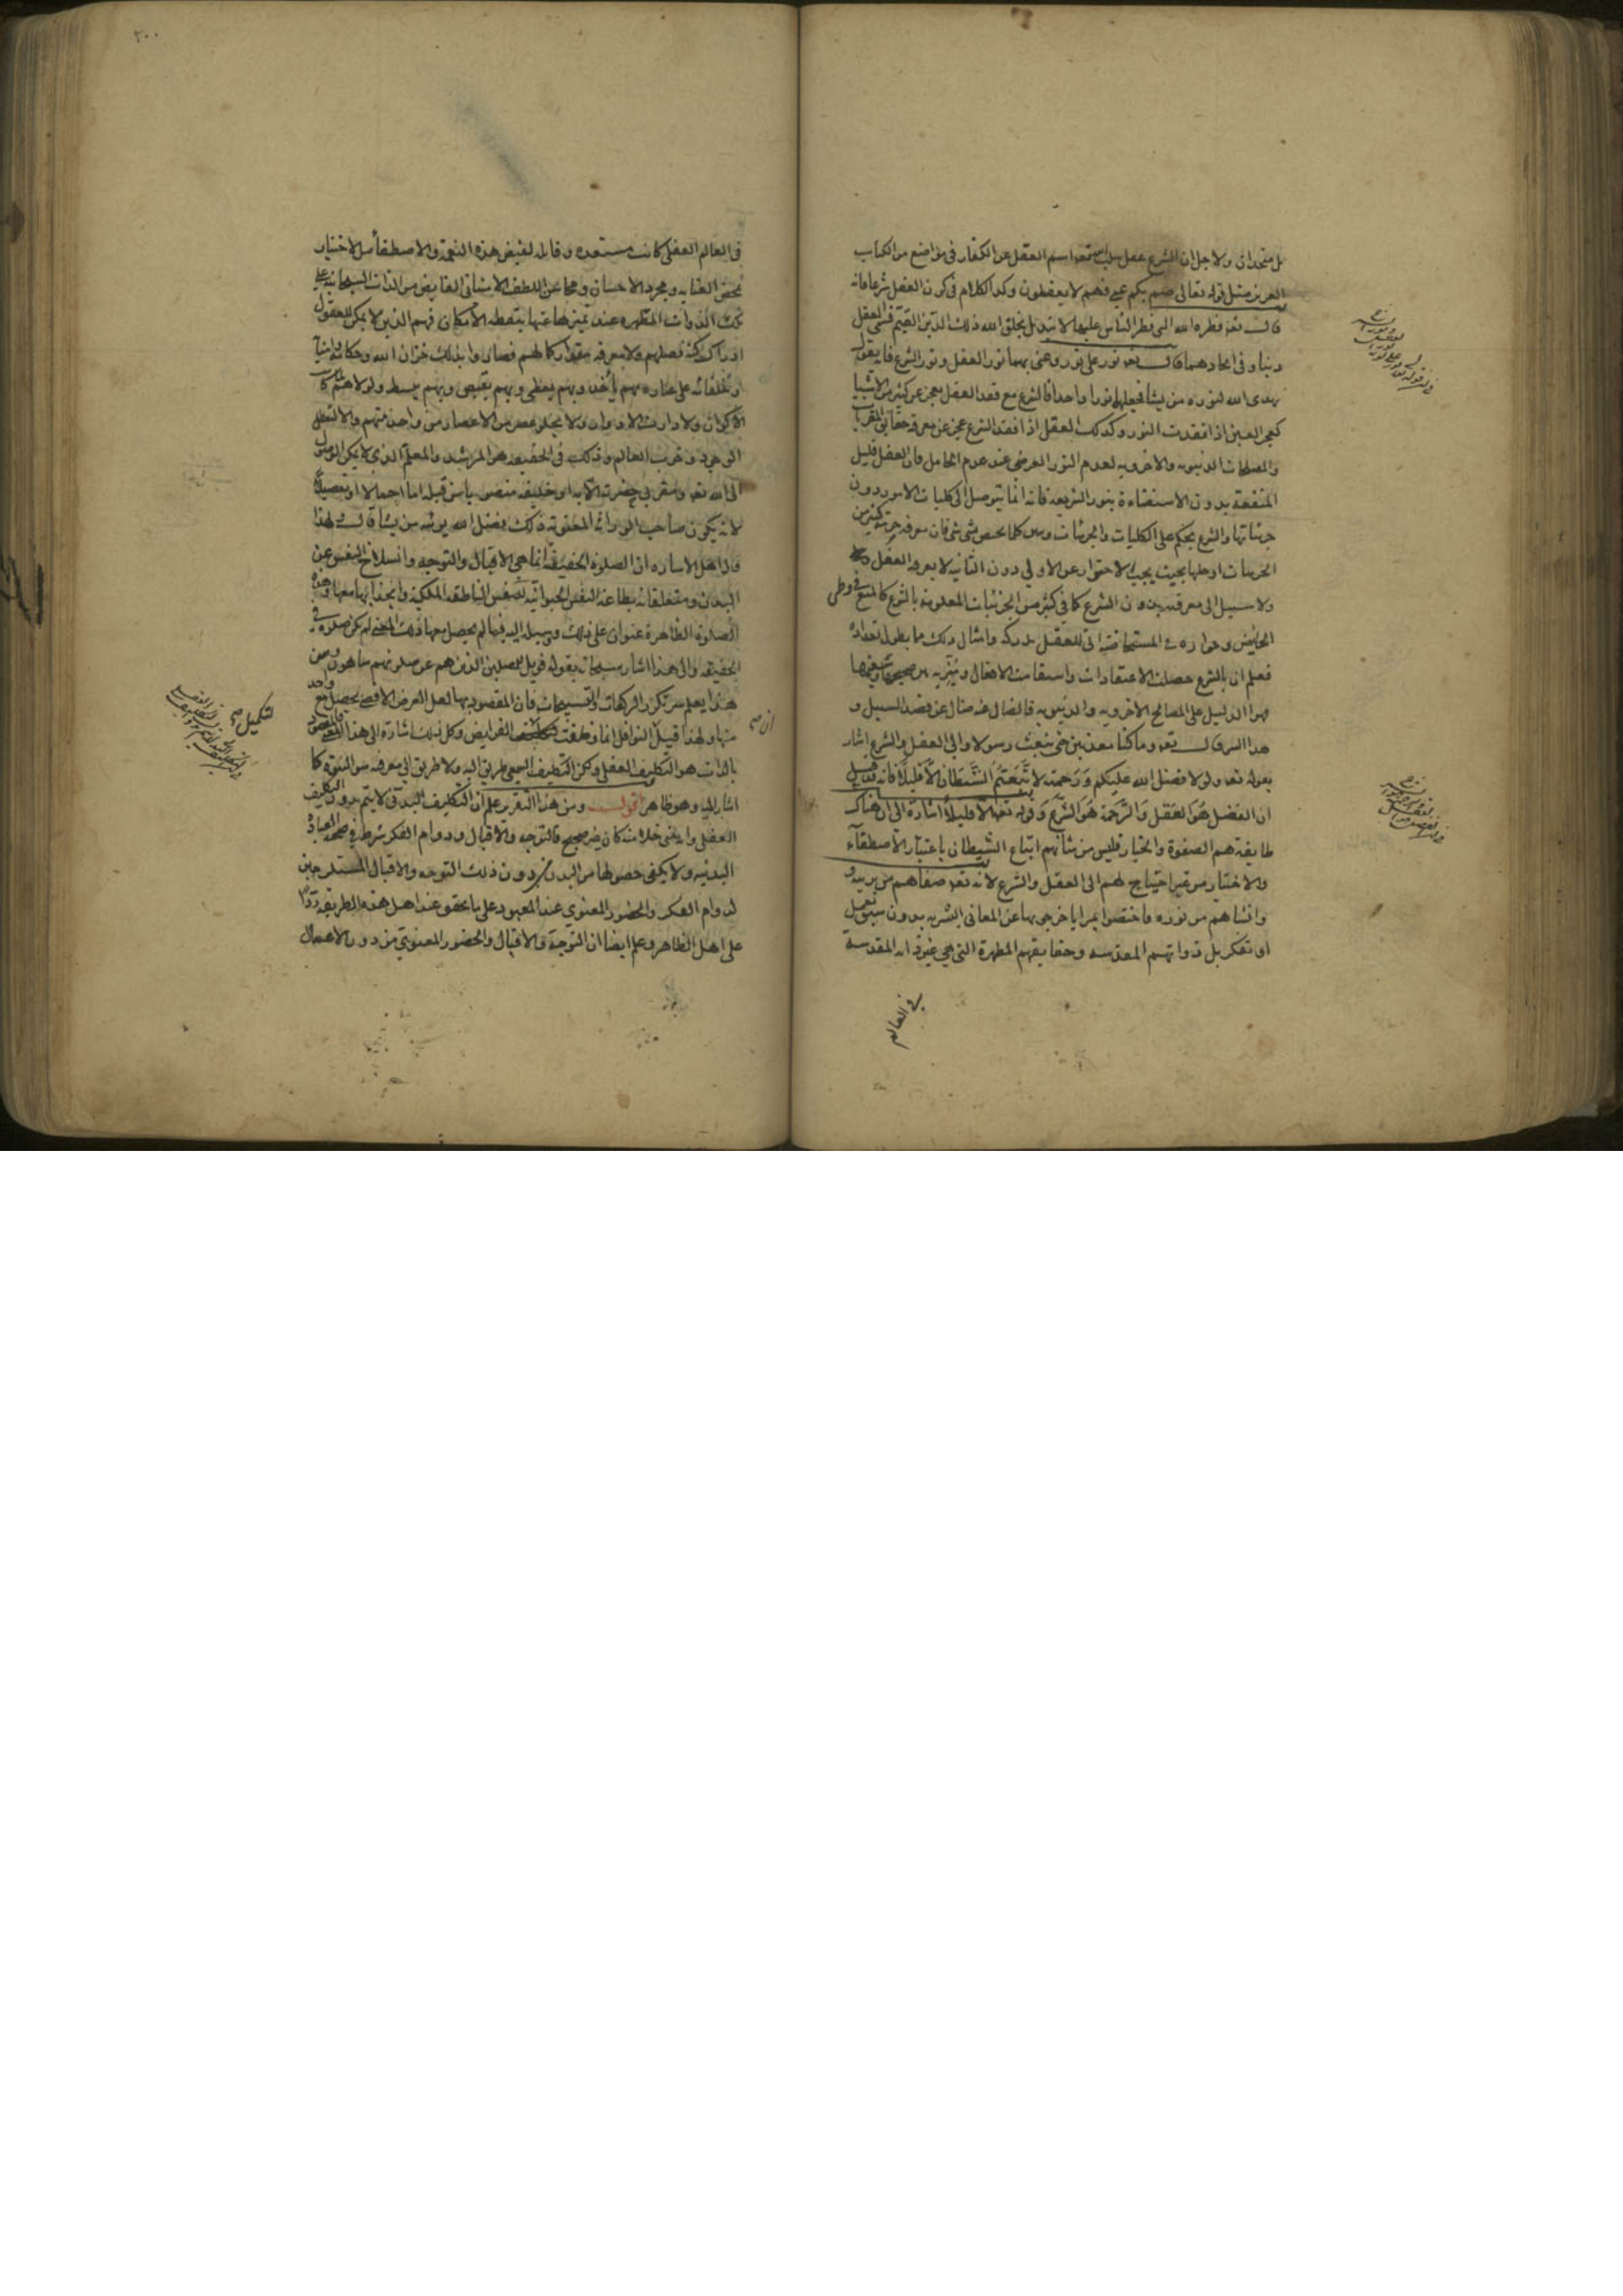 بل متحدان ولاجل ان الشرع عقل سلب الله تعه اسم العقل عن الكفار فى مواضع من الكتاب
العزيز مثل قوله تعالى صم بكم عمى فهم لا يعقلون وكذا الكلام فى كون العقل شرعا فانه
قال تعه فطره الله التى فطر الناس عليها لا تبديل لخلق الله ذلك الدين القيم فسمى العقل
دينا وفى اتحادهما قال تعه نور على نور وعنى بهما نور العقل ونور الشرع فا يقول
يهدى الله لنوره من يشا فجعلهما نورا واحدا فالشرع مع فقد العقل يعجز عن كثير من الاشيا
كعجز العين اذا فقدت النور وكذلك العقل اذا فقد الشرع عجز عن معرفه حقايق القربات
والمصلحات الدنيويه والاخرويه لعدم النور العرضى عند عدم الحامل فان العقل قليل
المنفعة بدون الاستضاءة بنور الشريعه فانه انما يتوصل الى كليات الامور دون
جزئياتها والشرع يحكم على الكليات والجزئيات وبين كلما يختص شى شى فان معرفه حرمه كثير من
الجزئيات او حلها بحيث يجب الاحتراز عن الاولى دون الثانيه لا يعرفه العقل
ولا سبيل الى معرفته بدون الشرع كما فى كثير من الجزئيات المعلومة بالشرع كالمنع فى وطى
الحائض وجوازه فى المستحاضة انى للعقل بدركه وامثال ذلك مما يطول تعداده
فعلم ان بالشرع حصلت الاعتقادات واستقامت الافعال وتميز به بين صحيحها وسقيمها
فهو الدليل على المصالح الاخرويه والدنيويه فالضال عنه ضال عن قصد السبيل و
هذا السر قال تعه وما كنا معذبين حتى نبعث رسولا والى العقل والشرع اشار
بقوله تعه ولولا فضل الله عليكم وَرَحمته لاتَّبَعتُمُ الشَّيطَانَ الّا قليلاً فانه قد قيل
ان الفضل هُوَ العَقل وَالرَّحمة هُوَ الشَّرع وَقوله تعه الا قليلاً اشارة الى ان هناك
طايفة هم الصفوة والخيار فليس من شأنهم اتباع الشيطان باعتبار الاصطفآء
والاختيار من غير احتياج لهم الى العقل والشرع لانه تعه صفاهم من بريته و
وانشاهم من نوره فاختصوا بمزايا خرجوا بها عن المعانى البشريه بدون سبق تعمل
او تفكر بل ذواتهم المقدسه وحقايقهم المطهرة التى هى غيوث انه المقدسة
فى العالم
فى العالم العقلى كانت مستعده وقابله لفيض هذه النعمة والاصطفاء بل الاختيار
بمحض العنايه ومجرد الاحسان ومحا عن اللطف الامتنانى الفايض من الذات السبحانيه على
تلك الذوات المطهره عند تميزها عنها بنقطه الامكان فهم الذين لا يمكن للعقول
ادراك كنه فضلهم ولا معرفه مقدار كمالهم فصاروا بذلك خزان الله وحكامه وامنا
وخلفائه على عباده بهم يأخذ وبهم يعطى وبهم يقبض وبهم يبسط ولولاهم ما كانت
الاكوان ولا دارت الادوار ولا يخلو عصر من الاعصار من واحد منهم والا لتعطل
الوجود وخرب العالم وذلك فى الحقيقه هو المرشد والمعلم الذى لا يمكن الوصول
الى الله تعه ومقربى حضرته الا به او خليفه منصوب من قبله اما اجمالا او تفصيلا
لانه يكون صاحب الوراثه الحقيقية ذلك فضل الله يوتيه من يشا قال ولهذا
قال اهل الاشاره ان الصلوة الحقيقه انما هى الاقبال والتوجه وانسلاخ النفس عن
البدن ومتعلقاته بطاعة النفس الحيوانيه للنفس الناطقه الملكية وانجذابها معها وهذه
الصلوة الظاهرة عنوان على ذلك ووسيله اليه فيما لم يحصل معها ذلك المعنى لم يكن صلوة فى
الحقيقه والى هذا اشار سبحانه بقوله فويل للمصلين الذين هم عن صلوتهم ساهون ومن
هذا يعلم سر تكرر الركعات والتسبيحات فان المقصود بها لعل الغرض الاقصى يحصل مع واحد
منها ولهذا قيل ان صح النوافل انما وظفت لتكميل صح الفرايض وكل ذلك اشارة الى هذا المعنى فالمقصود
بالذات هو التكليف العقلى ولكن التكليف السمعى طريق اليه ولا طريق الى معرفه سوا النبوة كما
اشار اليه وهو ظاهر اقول ومن هذا التقرير علم ان التكليف البدنى لا يتم بدون التكليف
العقلى وانه متى خلا منه كان غير صحيح فالتوجه والاقبال ودوام الفكر شرط فى صحه العباده
البدنيه ولا يكفى حصولها من البدن بدون ذلك التوجه والاقبال المستلزمين
لدوام الفكر والحضور المعنوى عند المعبود على ما يحقق عند اهل هذه الطريقه ردا
على اهل الظاهر وعلم ايضا ان التوجه والاقبال والحضور المعنوى من دون الاعمال